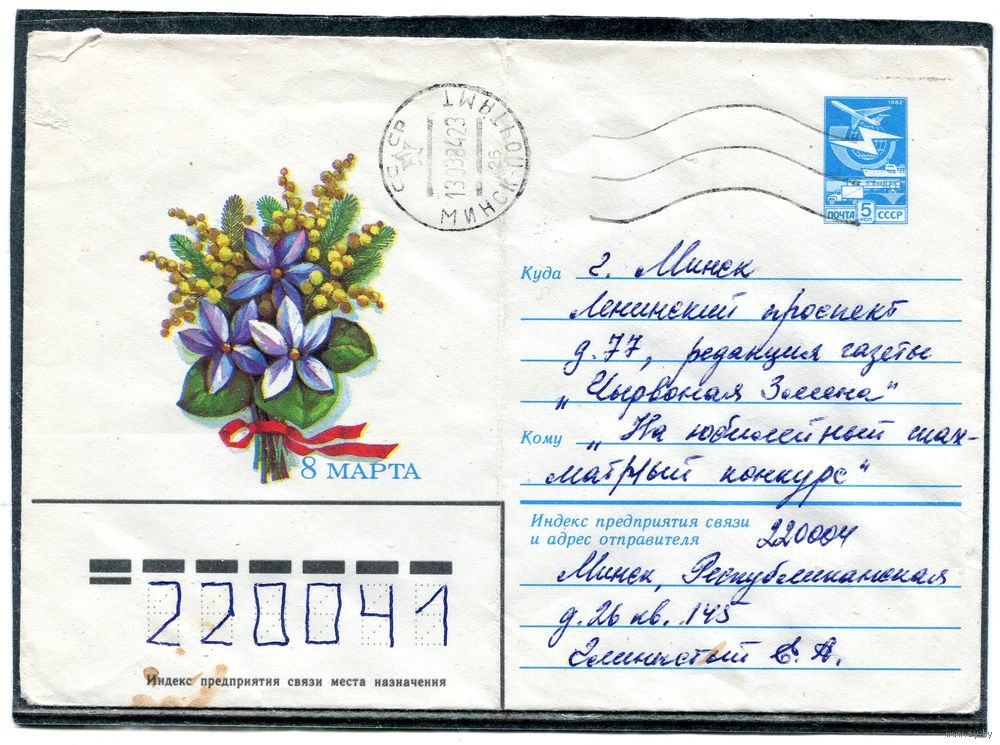 СССР
МИНСК-ПОЧТАМТ
13038423
26
1982
ПОЧТА 5 КОП СССР
8 МАРТА
Куда г. Минск
Ленинский проспект
д. 77, редакция газеты
„Чырвоная Змена"
Кому „На юбилейный шах-
матный конкурс"
Индекс предприятия связи
и адрес отправителя 220004
Минск, Республиканская
д. 26 кв. 145
Е. А.
220041
Индекс предприятия связи места назначения